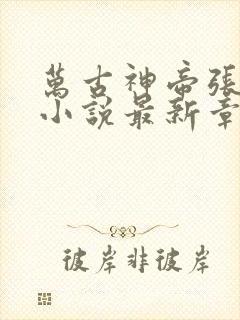 萬古神帝張
小說最新章
彼岸非彼岸